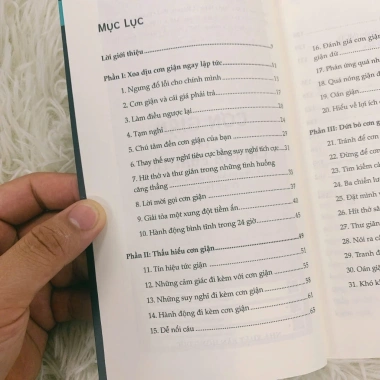 MỤC LỤC
Lời giới thiệu
Phần I: Xoa dịu cơn giận ngay lập tức
1. Ngưng đổ lỗi cho chính mình
2. Cơn giận và cái giá phải trả
3. Làm điều ngược lại
4. Tạm nghỉ
5. Chú tâm đến cơn giận của bạn
6. Thay thế suy nghĩ tiêu cực bằng suy nghĩ tích cực
7. Hít thở và thư giãn trong những tình huống
căng thẳng
8. Lời mời gọi cơn giận
9. Giải tỏa một xung đột tiềm ẩn
10. Hành động bình tĩnh trong 24 giờ 45
Phần II: Thấu hiểu cơn giận 49
11. Tín hiệu tức giận 51
12. Những cảm giác đi kèm với cơn giận 55
13. Những suy nghĩ đi kèm cơn giận 58
14. Hành động đi kèm cơn giận 61
15. Dễ nổi cáu 65
16. Đánh giá cơn giận
giận dữ
17. Phản ứng quá
18. Quá nóng giận
19. Oán giận
20. Hiểu về lợi ích
Phần III: Dứt bỏ cơn
21. Tránh để cơn
22. Đừng để cơn
23. Tìm kiếm
24. Ba chiến
25. Đặt mình
26. Hít thở
27. Thư giãn
28. Nói ra
29. Tranh
30. Oán
31. Khó